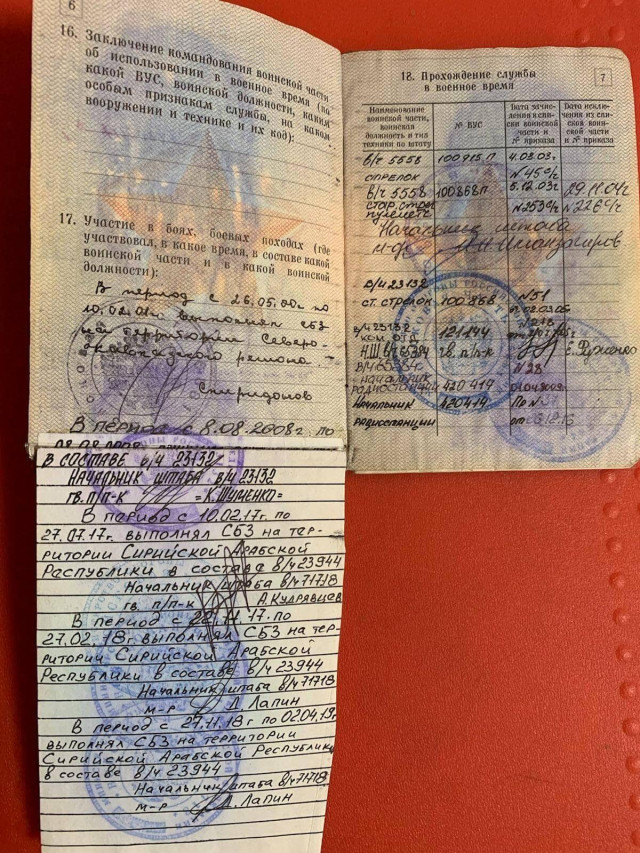 6
16. Заключение командования воинской части
об использовании в военное время (по
какой ВУС, воинской должности, каким
особым признакам службы, на каком
вооружении и технике и их код):
17. Участие в боях, боевых походах (где
участвовал, в какое время, в составе какой
воинской части и в какой воинской
должности):
В период с 26.05.00г по
10.02.01г выполнял СБЗ
на территории Северо-
Кавказского региона.
Спиридонов
В период с 8.08.2008г по
В СОСТАВЕ В/Ч 23132
НАЧАЛЬНИК ШТАБА В/Ч 23132
гв. п/п-к =К.Шуменко=
В период с 10.02.17г. по
27.07.17г. выполнял СБЗ на тер-
ритории Сирийской Арабской
Республики в составе в/ч 23944
Начальник штаба в/ч 71718
гв. п/п-к А.Кудрявцев
В период с 22.11.17г. по
27.02.18г выполнял СБЗ на тер-
ритории Сирийской Арабской
Республики в составе в/ч 23944
Начальник штаба в/ч 71718
м-р Д. Лапин
В период с 27.11.18г по 02.04.19г.
выполнял СБЗ на территории
Сирийской Арабской Республики
в составе в/ч 23944
Начальник штаба в/ч 71718
м-р Д. Лапин
7
18. Прохождение службы
в военное время
Наименование воинской части, воинская должность и тип техники по штату
№ ВУС
Дата зачисления в списки воинской части и № приказа
Дата исключения из списков воинской части и № приказа
в/ч 5558 100915 П 4.03.03г
стрелок №45с/ч
в/ч 5558 100868П 5.12.03г 29.11.04г
стар. стрел. №253с/ч №226с/ч
пулеметч.
Начальник штаба
м-р
в/ч 23132 №51
ст. стрелок 100868
в/ч 23132 121144
ком. отд.
Н.Ш. гв. п/п-к
начальник №28
радиостанции 420414
Начальник 420414 По №
радиостанции